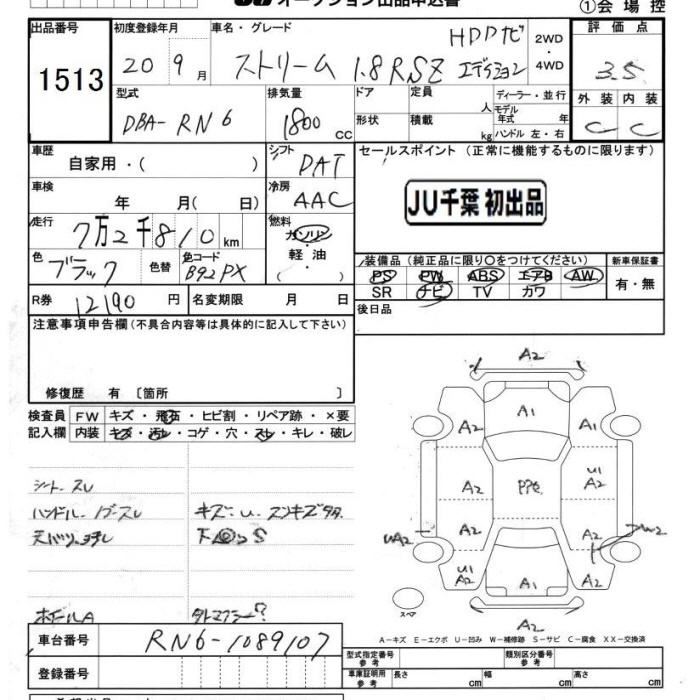 オークション出品申込書
①会場控
出品番号 初度登録年月 車名・グレード 評価点
1513 20 9月 ストリーム 1.8RSZ エディション HDDナビ 2WD ・ 4WD 3.5
外装 内装
C C
型式 排気量 ドア 定員 人 ディーラー・並行
DBA-RN6 1800 cc 形状 積載 kg モデル年式 年
ハンドル 左・右
車歴 シフト セールスポイント (正常に機能するものに限ります)
自家用・( ) DAT
JU千葉 初出品
車検 冷房
年 月( 日) AAC
走行 燃料
7万2千810km ガソリン・軽油・( )
色 色替 色コード
ブラック B92PX
装備品 (純正品に限り○をつけてください) 新車保証書
PS PW ABS エアB AW 有・無
SR ナビ TV カワ
R券 12190円 名変期限 月 日 後日品
注意事項申告欄(不具合内容等は具体的に記入して下さい)
修復歴 有 〔箇所 〕
検査員 FW キズ・飛石・ヒビ割・リペア跡・×要
記入欄 内装 キズ・汚れ・コゲ・穴・スレ・キレ・破レ
シートスレ
ハンドル、ノブスレ キズ・U・スンキズ多々
天バリ、ヨゴレ 下回りS
ホイールA 外マフラー?
A2
A2 A1 A2
A2 PPも U1 A2
UA2 A2 A2 W2
U1 A2 A1 A2
A2
スペア
A-キズ E-エクボ U-凹み W-補修跡 S-サビ C-腐食 XX-交換済
車台番号 RN6-1089107
型式指定番号 参考 類別区分番号 参考
登録番号 車庫証明用 参考 長さ cm 幅 cm 高さ cm